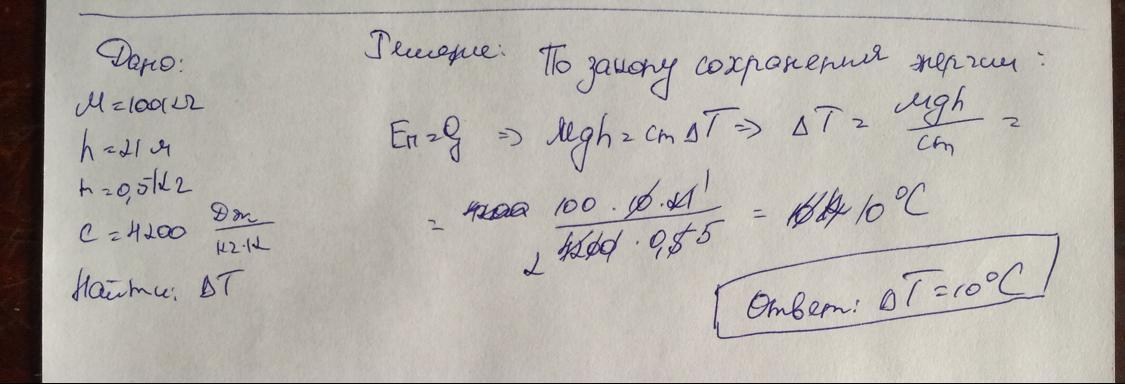 Дано:
M = 100 кг
h = 21 м
m = 0,5 кг
c = 4200 Дж/кг·К
Найти: ΔT
Решение: По закону сохранения энергии:
Eп = Q => Mgh = cmΔT => ΔT = Mgh/cm =
= 100 · 10 · 21 / 4200 · 0,5 = 10°C
Ответ: ΔT = 10°C